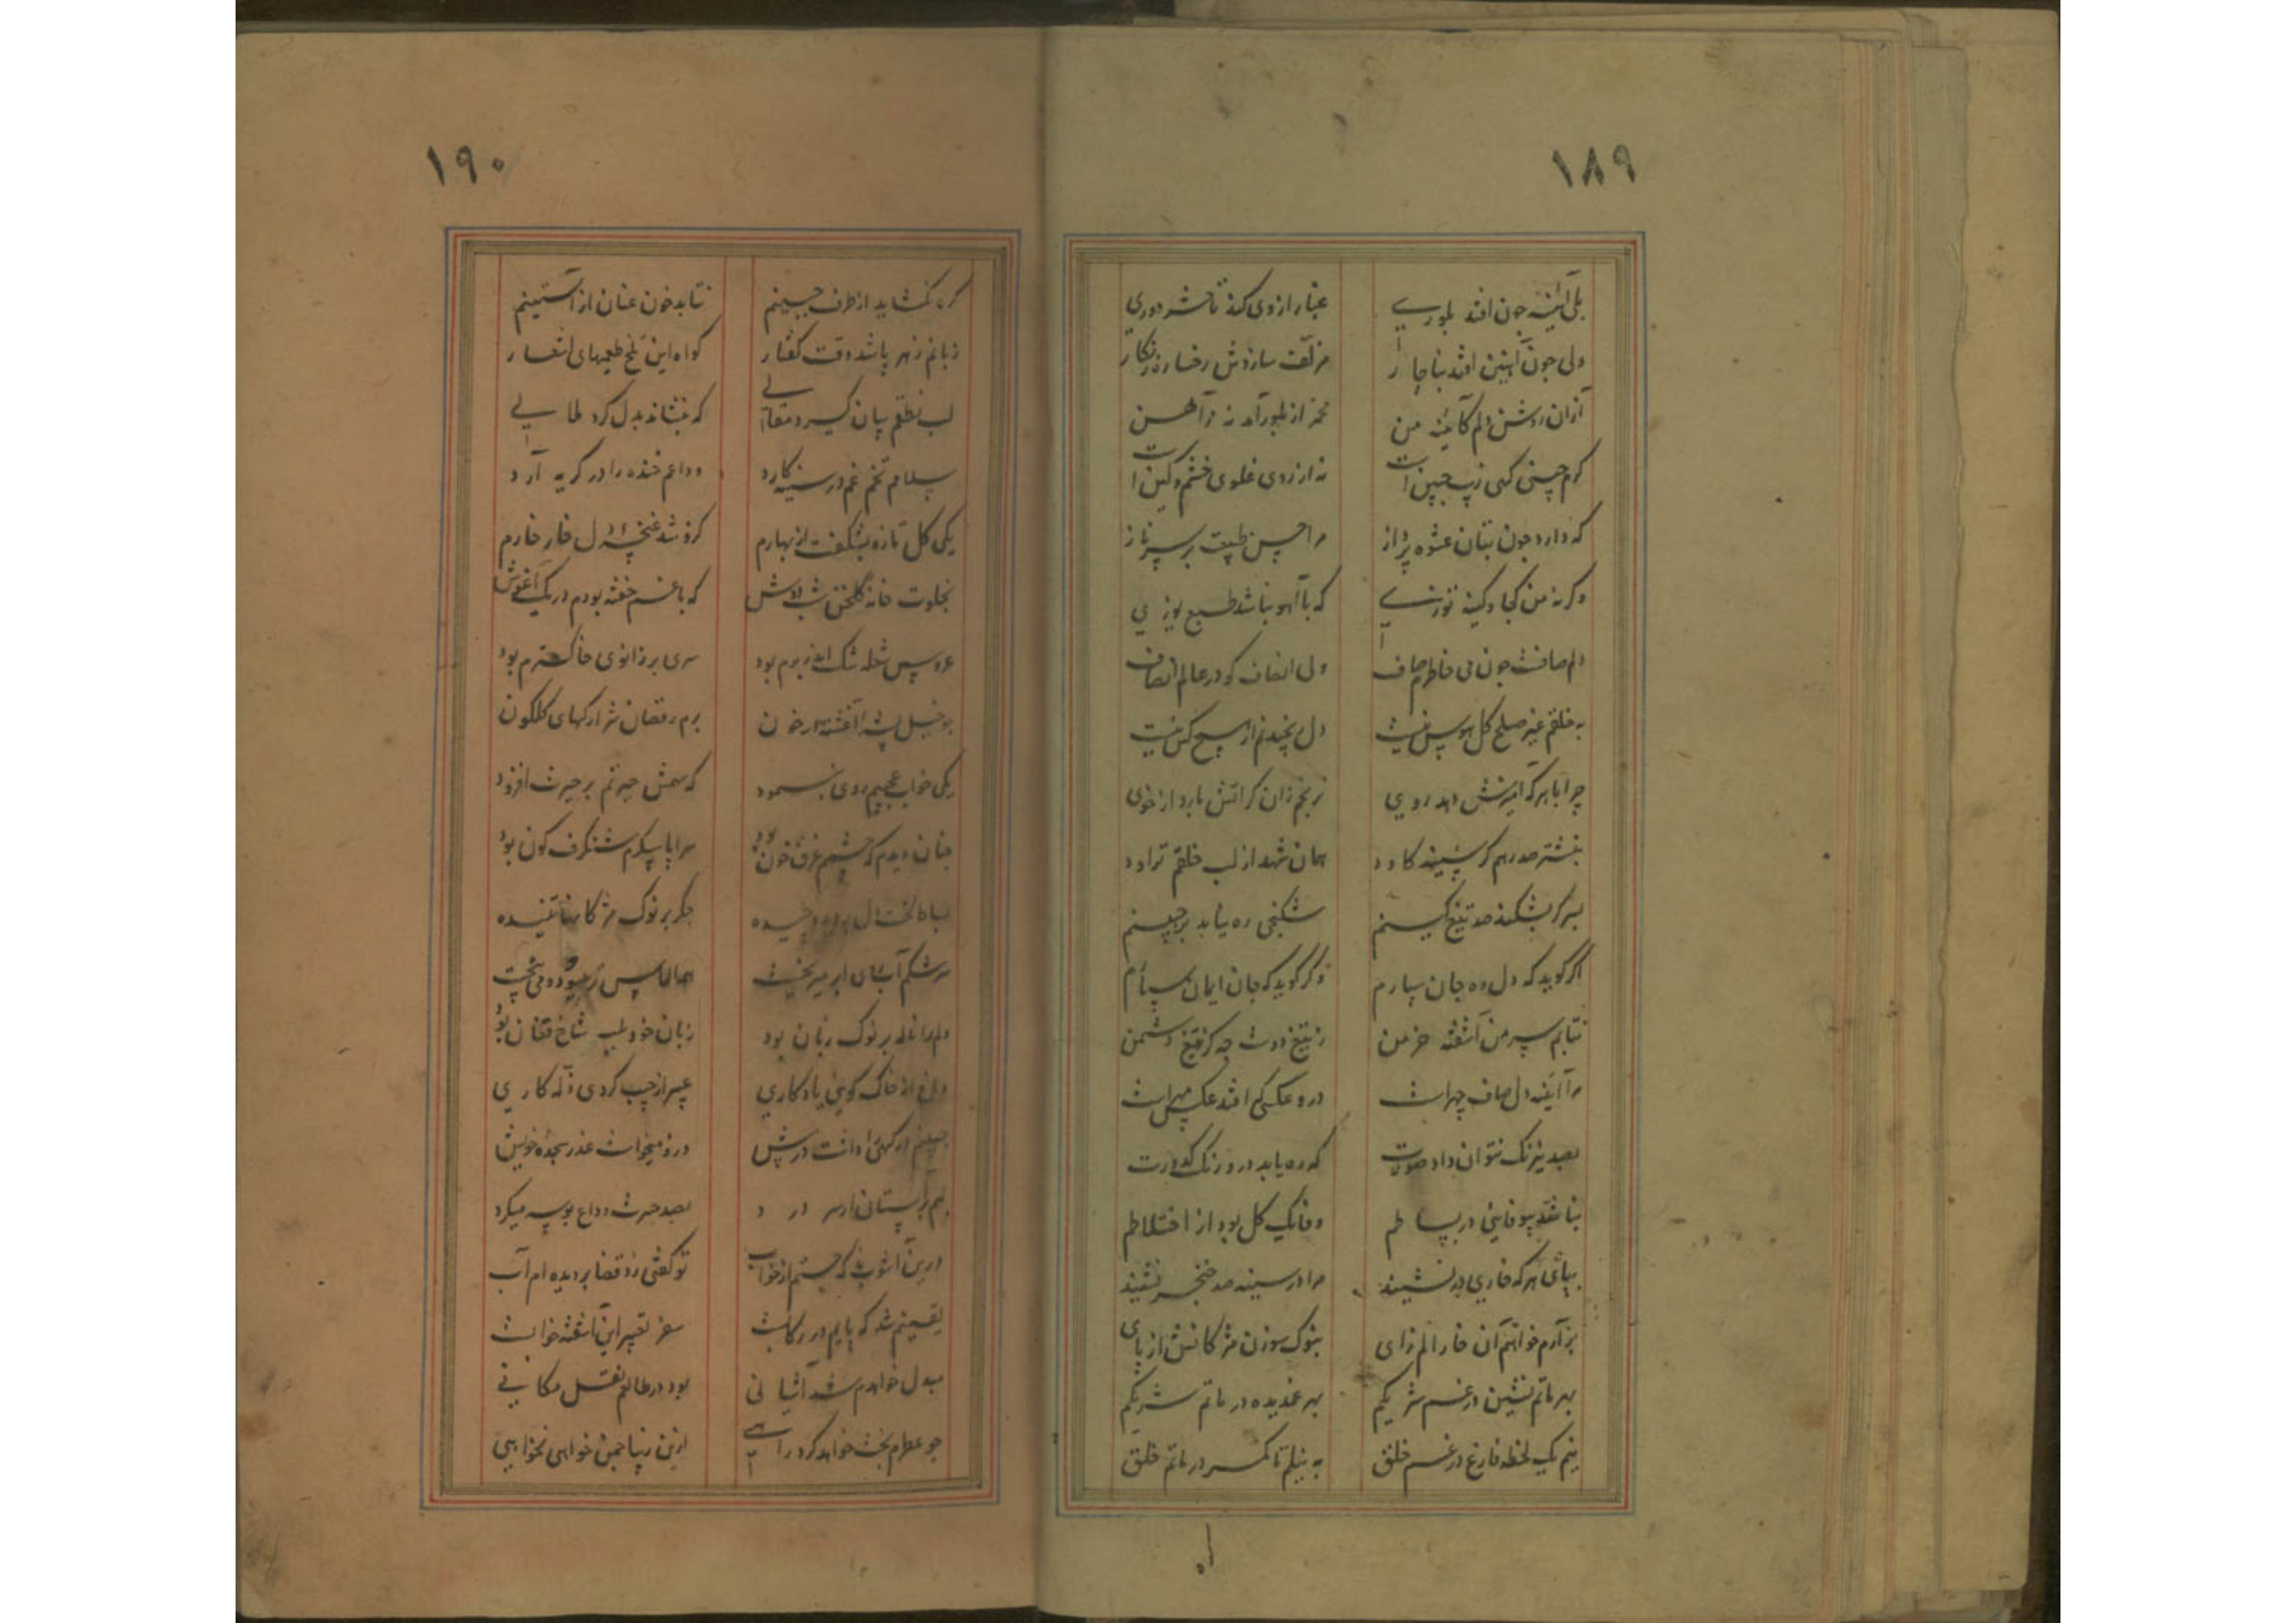 ۱۸۹
بلی آئینه چون افتد بلوری
غبار از وی کند تا حشر دوری
ولی چون آهنین افتد بناچار
مزلف سازدش رخساره زنگار
ازان روشن دلم کآئینه من
نه از بلور آمد نه ز آهن
گرم چینی گهی زیب جبین است
نه از روی غلوی خشم و کین است
که دارد چون بتان عشوه پرداز
مرا چین طبیعت بر سر ناز
وگرنه من کجا و کینه توزی
که با آهو نباشد طبع یوزی
دلم صافست چون می خاطرم صاف
ولی انصاف کو در عالم انصاف
به خلقم غیر صلح کل هوس نیست
دل رنجیدنم از هیچ کس نیست
چرا با هرکه آمیزش دهد روی
نرنجم زان گر آتش بارد از خوی
بنشتر صد رهم گر سینه کاود
همان شهد از لب خلقم تراود
بسر گر بشکند صد تیغ کینم
شکنجی ره نیابد بر جبینم
اگر گوید که دل ده جان سپارم
وگر گوید که جان ایمان سپارم
نتابم سر من آشفته خرمن
ز تیغ دوست چه کز تیغ دشمن
مرا آئینه دل صاف چهراست
درو عکسی کم افتد عکس مهراست
بصد نیرنگ نتوان داد صورت
که ره یابد درو رنگ کدورت
نباشد بیوفائی در بساطم
وفا یک گل بود از اختلاطم
بپای هرکه خاری در نشیند
مرا در سینه صد خنجر نشیند
برآرم خواهم آن خار الم زای
بنوک سوزن مژگانش از پای
بهر ماتم نشین در غم شریکم
بهر غمدیده در ماتم شریکم
نیم یک لحظه فارغ در غم خلق
به نیلم تا کمر در ماتم خلق
اه
۱۹۰
گره نگشاید از طرف جبینم
نتابد خون عنان از آستینم
زبانم زهر پاشد وقت گفتار
گواه این تلخ طعمیهای اشعار
لب نطقم بیان گیرد مقالی
که ننشاند بدل گرد ملالی
سلامم تخم غم در سینه کارد
وداعم خنده را در گریه آرد
یکی گل تازه بشکفت از بهارم
کزو شد غنچه دل خار خارم
بخلوت خانه گلخن شب دوش
که با غم خفته بودم در یک آغوش
عروس شعله تنگ اندر برم بود
سری بر زانوی خاکسترم بود
چو خیل آغشته در خون
برم رقصان شرارکهای گلگون
یکی خواب عجیبم روی بنمود
که سهمش حیرتم بر حیرت افزود
چنان دیدم که چشمم غرق خون بود
سراپا پیکرم شنگرف گون بود
بساط لخت دل چیده
جگر بر نوک مژگانها تنیده
سرشکم آب میریخت
الماس می بیخت
دلم را ناله بر نوک زبان بود
زبان خود بلب شاخ فغان بود
از خاک کویی یادگاری
عبیر از جیب کردی لاله کاری
جبینم داشت در پیش
درو میخواست عذر سجده خویش
لبم بر آستان
بصد حسرت وداع بوسه میکرد
درین آشوب که جستم از خواب
تو گفتی زد قضا بر دیده ام آب
یقینم شد که پایم در رکابست
سفر تعبیر این آشفته خوابست
مبدل خواهدم شد آشیانی
بود در طالعم نقل مکانی
چو عطرم بخت خواهد کرد راهی
ازین زیبا چمن خواهی نخواهی